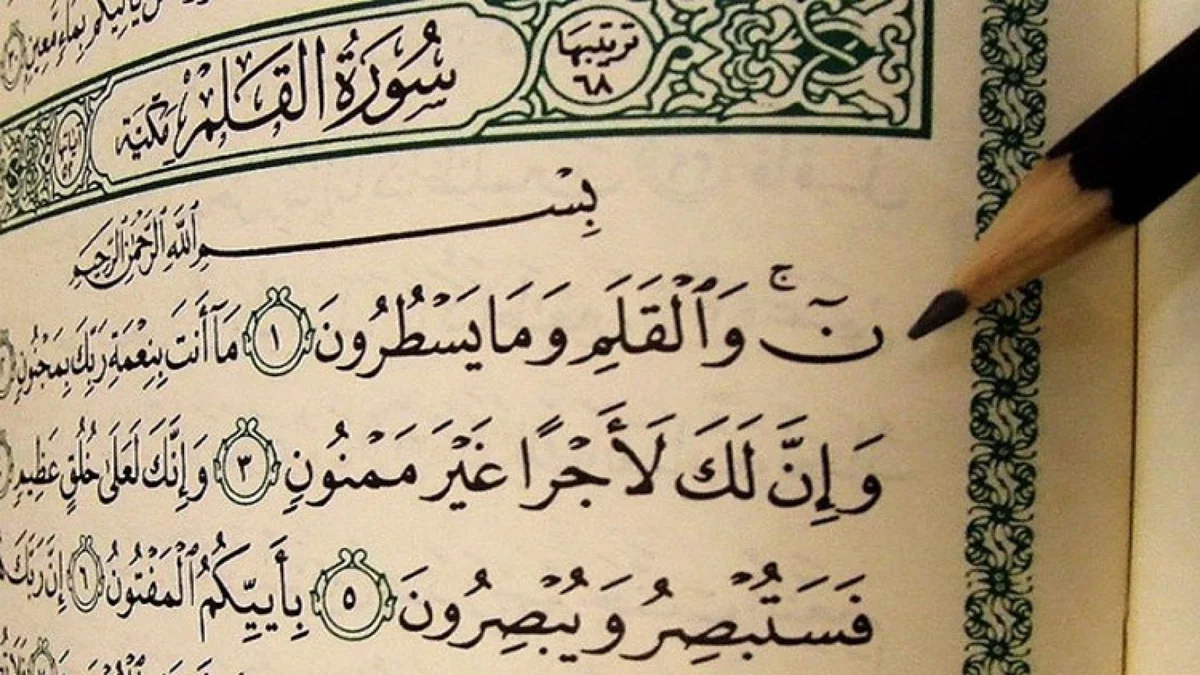 يأتيكم بماء معين
سُورَةُ القَلَمِ مَكِّيَّة ترتيبها ٦٨
آياتها ٥٢
بِسْمِ ٱللَّهِ ٱلرَّحْمَٰنِ ٱلرَّحِيمِ
نٓ ۚ وَٱلْقَلَمِ وَمَا يَسْطُرُونَ ١ مَآ أَنتَ بِنِعْمَةِ رَبِّكَ بِمَجْنُونٍ
وَإِنَّ لَكَ لَأَجْرًا غَيْرَ مَمْنُونٍ ٣ وَإِنَّكَ لَعَلَىٰ خُلُقٍ عَظِيمٍ
فَسَتُبْصِرُ وَيُبْصِرُونَ ٥ بِأَييِّكُمُ ٱلْمَفْتُونُ ٦ إِنَّ رَبَّكَ